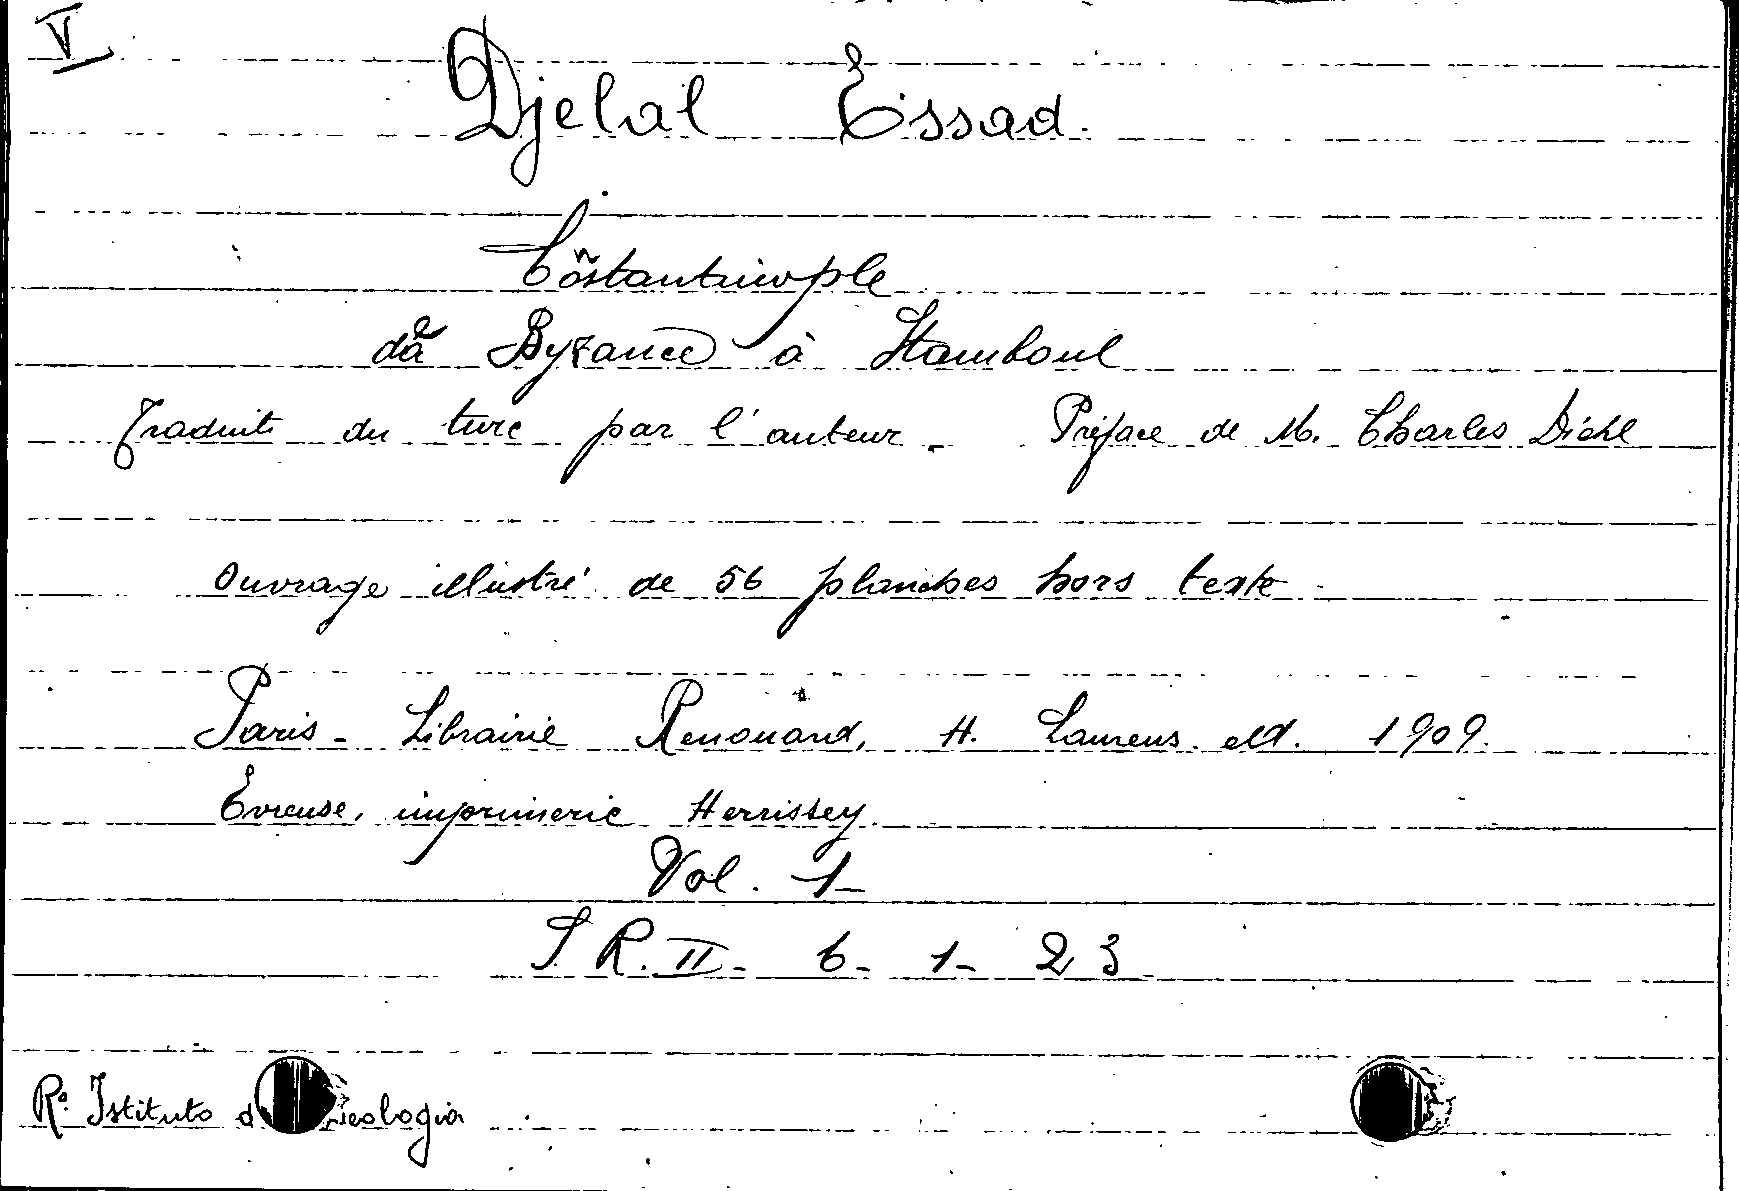 V
Djelal Essad.
Cõstantinople
de Byzance à Stamboul
Traduit du turc par l'auteur - Préface de M. Charles Diehl
Ouvrage illustré de 56 planches hors texte
Paris - Librairie Renouard, H. Laurens. ed. 1909.
Evreuse, imprimerie Herissey.
Vol. 1-
S R. II - 6 - 1 - 23
R° Istituto